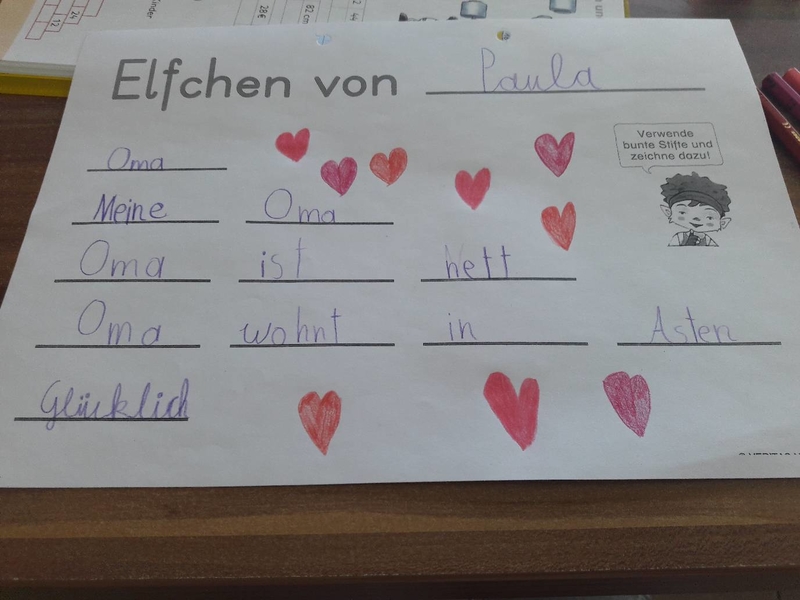 24
12
inder
28€
82 cm
2
44
Elfchen von Paula
Verwende
bunte Stifte und
zeichne dazu!
Oma
Meine Oma
Oma ist hett
Oma wohnt in Asten
Glücklich